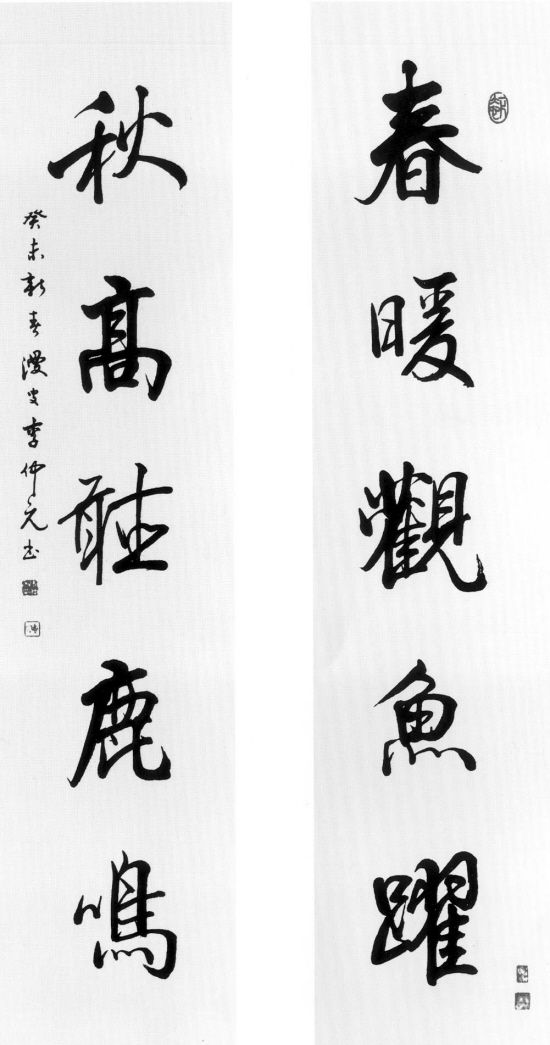 春暖觀魚躍
秋高聽鹿鳴
癸未新春漫叟李仲元书